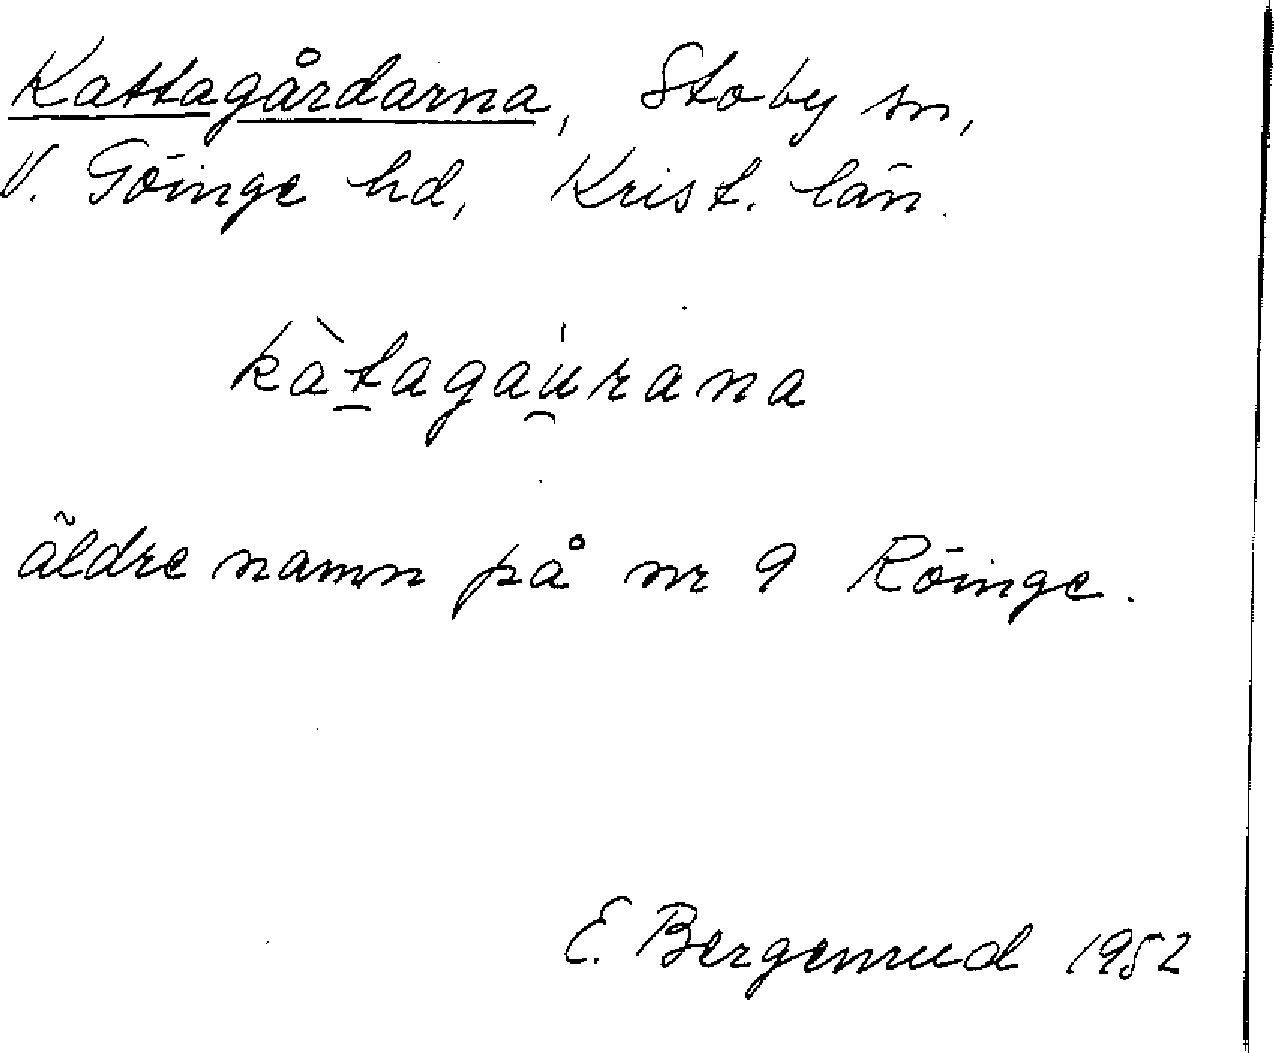 Kattagårdarna, Stoby sn,
V. Göinge hd, Krist. län.
kàt̠agau̯̍rana
äldre namn på nr 9 Röinge.
E. Bergenrud 1952